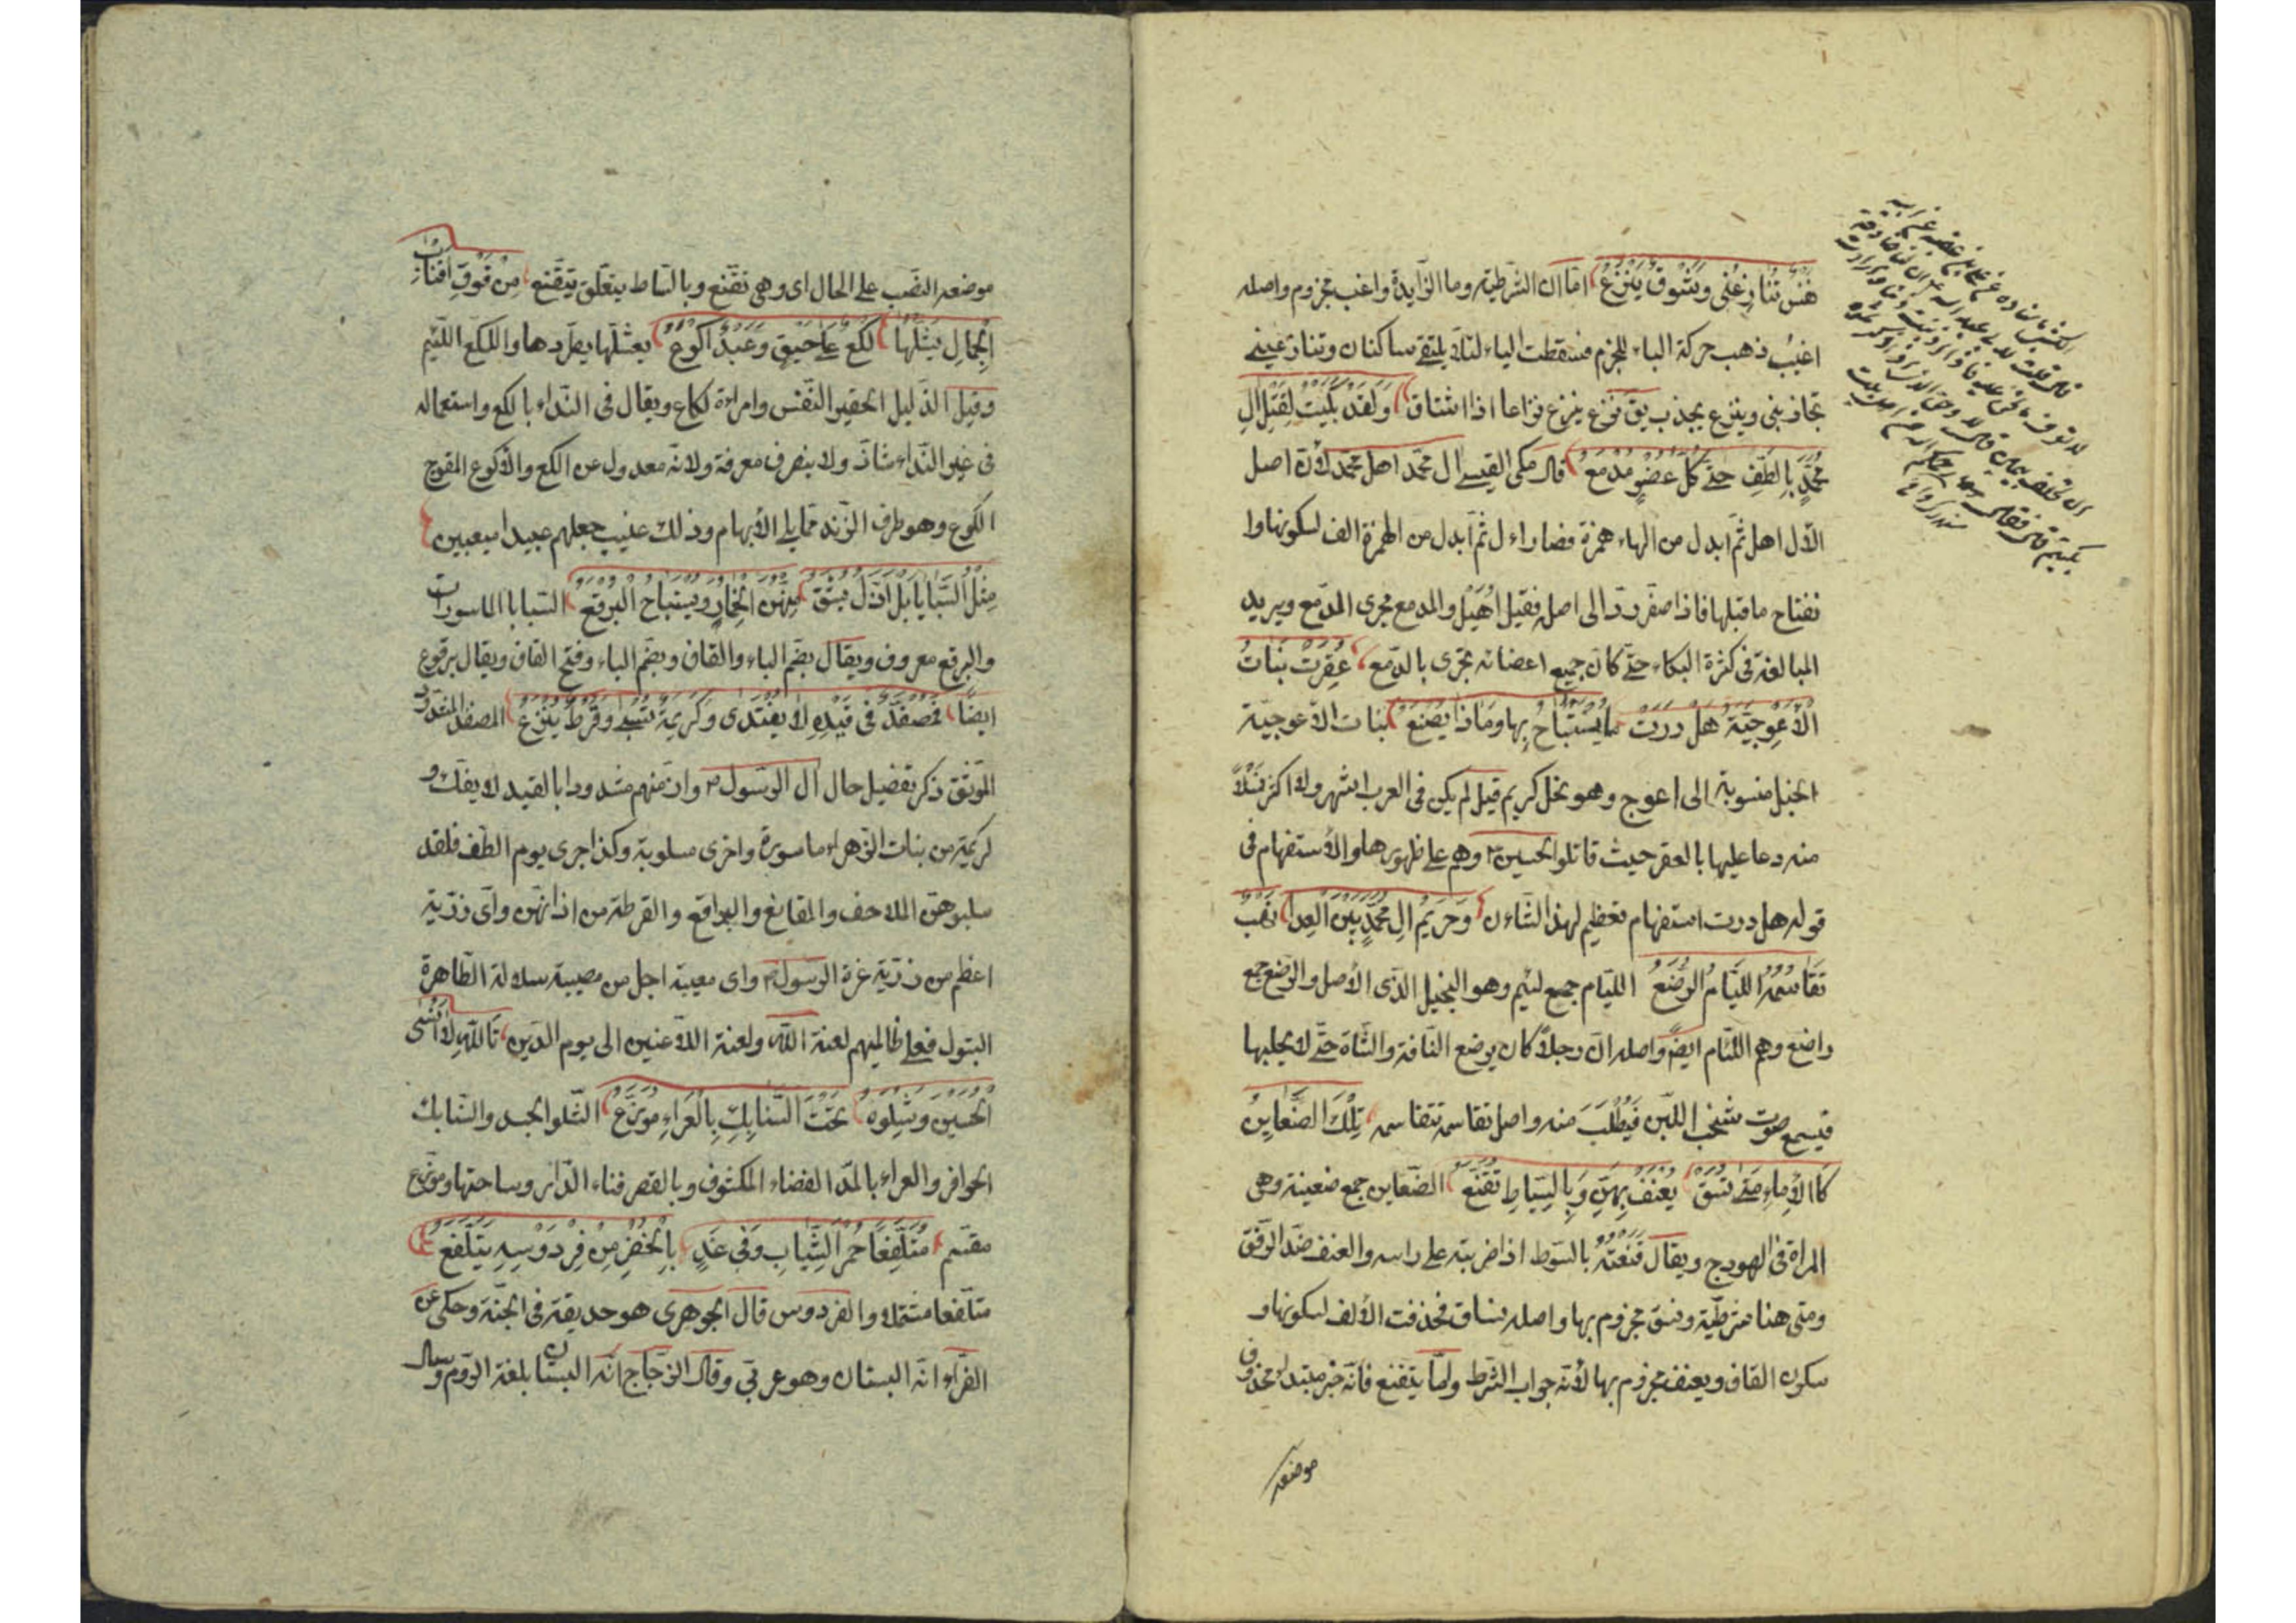 هَنَسٌ تُنَازِعُنِى وَشَوْقٌ يَنْزِعُ امّا ان الشّرطيّة وما الزّايدة واغب مجزوم واصله
اغيب ذهب حركة الباء للجزم فسقطت الياء لئلّا يلتقى ساكنان وتنازعينى
تجاذبنى وينزع يجذب يق نزع ينزع نزاعا اذا اشتاق وَلَقَدْ بَكَيْتُ لِقَتْلِ الِ
مُحَمَّدٍ بِالطَّفِّ حَتّٰى كُلُّ عُضْوٍ مَدْمَعٌ قال مكى القيسى ال محمّد اهل محمّد لأنّ اصل
الأل اهل ثمّ ابدل من الهاء همزة فصار اءل ثمّ ابدل من الهمزة الف لسكونها وا
نفتاح ما قبلها فاذا صغّر ردّ الى اصله فقيل اُهَيْل والمدمع مجرى الدّمع ويريد
المبالغة فى كثرة البكاء حتّى كانّ جميع اعضائه تجرى بالدّمع عُقِرَتْ بَنَاتُ
الْأَعْوَجِيَّةِ هَلْ دَرَتْ مَا يُسْتَبَاحُ بِهَا وَمَاذَا يُصْنَعُ بنات الأعوجيّة
الخيل منسوبة الى اعوج وهو فحل كريم قيل لم يكن فى العرب اشهر ولا اكثر نَسْلًا
منه دعا عليها بالعقر حيث قاتلوا الحسين ع وهم على ظهورها والأستفهام فى
قوله هل درت استفهام تعظيم لهذا الشّاءن وَحَرِيمُ الِ مُحَمَّدٍ بَيْنَ الْعِدَا نَهْبٌ
تَقَاسَمُهُ اللِّيَامُ الرُّضَّعُ اللّيام جمع لئيم وهو البخيل الدّنى الأصل والرّضّع جمع
راضع وهم اللّئام ايضًا واصله انّ رجلًا كان يرضع النّاقة والشّاة حتّى لا يحلبها
فيسمع صوت شخب اللّبن فَيُطْلَبَ منه واصل تقاسمه تتقاسمه تِلْكَ الضَّعَايِنُ
كَالْأِمَاءِ مَتٰى تُسَقْ يُعْنَفْ بِهِنَّ وَبِالسِّيَاطِ تُقَنَّعُ الضّعاين جمع ضعينة وهى
المراة فى الهودج ويقال قَنَّعْتُهُ بالسّوط اذا ضربته على راسه والعنف ضدّ الرّفق
ومتى هنا شرطيّة وتسق مجزوم بها واصله تساق فحذفت الألف لسكونها و
سكون القاف ويعنف مجزوم بها لأنّه جواب الشّرط وامّا يتقنع فانّه خبر مبتداء محذوف
موضعه
موضعه النّصب على الحال اى وهى تقنّع وبالسّياط يتعلّق بتقنّع مِنْ فَوْقِ اَقْتَابِ
الْجِمَالِ يَشُلُّهَا لُكَعٌ عَلٰى حَنَقٍ وَعَبْدٌ اَكْوَعُ يشلّها يطردها واللكع اللّئيم
وقيل الذّليل الحقير النّفس وامراءة لكاع ويقال فى النّداء يا لكع واستعماله
فى غير النّداء شاذّ ولا ينصرف معرفة ولانّه معدول عن الكع والأكوع المعوج
الكوع وهو طرف الزّند ممّا يلى الأبهام وذلك عيب جعلهم عبيدا معيبين
مِثْلَ السَّبَايَا بَلْ اَذَلَّ يُشَقُّ مِنْهُنَّ الْخِمَارُ وَيُسْتَبَاحُ الْبُرْقُعُ السّبايا الماسورات
والبرقع معروف ويقال بضمّ الباء والقاف وبضمّ الباء وفتح القاف ويقال برقوع
ايضًا فَمُصَفَّدٌ فِى قَيْدِهِ لَا يُفْتَدٰى وَكَرِيمَةٌ تُسْبٰى وَقُرْطٌ يُنْزَعُ المصفد
الموثق ذكر تفضيل حال ال الرّسول ص وانّ منهم مشدودا بالقيد لا يفكّ و
كريمة من بنات الزّهراء ماسورة واخرى مسلوبة وكذا جرى يوم الطّف فلقد
سلبوهنّ الملاحف والمقانع والبراقع والقرطة من اذانهنّ واىّ رزيّة
اعظم من رزيّة عزة الرّسول ص واى مصيبة اجل من مصيبة سلالة الطّاهرة
البتول فعلى ظالميهم لعنة اللّه ولعنة اللّاعنين الى يوم الدّين تَاللّٰهِ لَا اَنْسَى
الْحُسَيْنَ وَشِلْوُهُ تَحْتَ السَّنَابِكِ بِالْعَرَاءِ مُوَزَّعٌ الشّلو الجسد والسّنابك
الحوافر والعراء بالمدّ الفضاء المكشوف وبالقصر فناء الدّار وساحتها وموزّع
مقسّم مُتَلَفِّعًا حُمْرَ الثِّيَابِ وَفِى غَدٍ بِالْخُضْرِ مِنْ فِرْدَوْسِهِ يَتَلَفَّعُ
متلفّعا مشتملا والفردوس قال الجوهرى هو حديقة فى الجنّة وحكى عن
الفرّاء انّه البستان وهو عربىّ وقال الزّجّاج انّه البستان بلغة الرّوم وقال